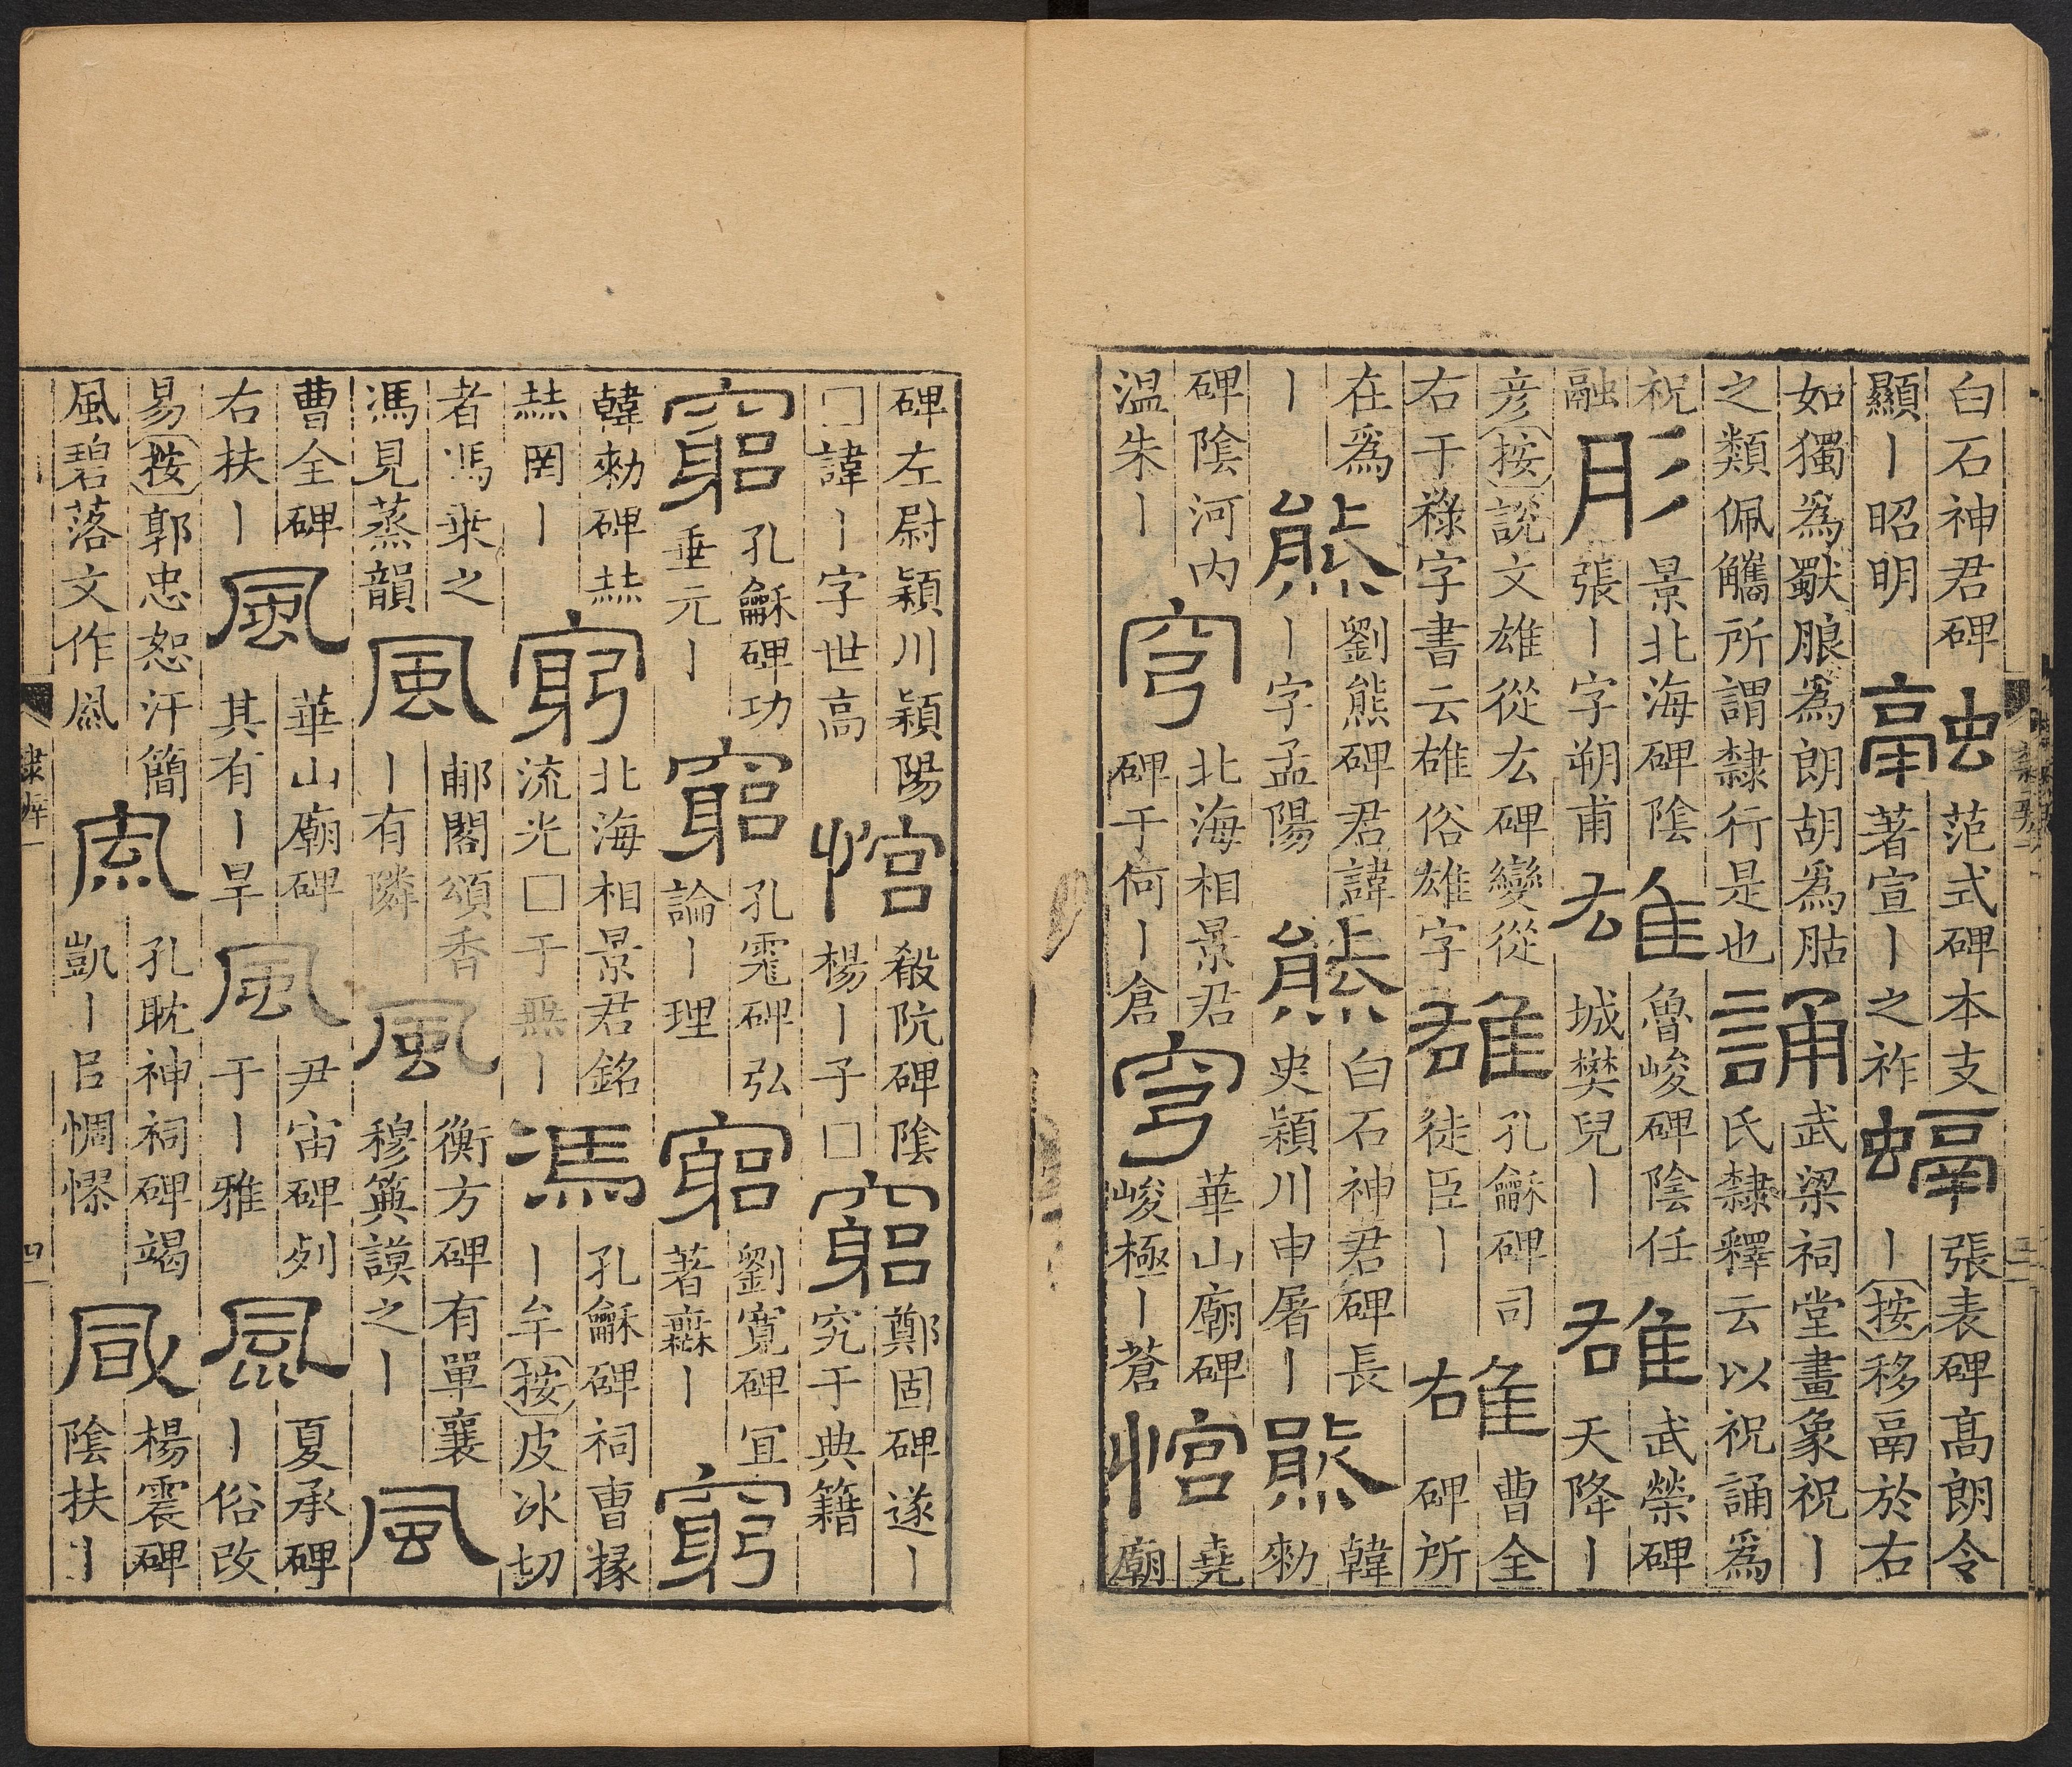 白石神君碑
顯丨昭明
融
范式碑本支
著宣丨之祚
螎
張表碑髙朗令
丨按移鬲於右
如獨為獸朖為朗胡為𦙶
之類佩觿所謂隸行是也
誦
武梁祠堂畫象祝丨
氏隸釋云以祝誦為
祝
融
肜
景北海碑陰
張丨字朔甫
雄
魯峻碑陰任
城樊兒丨
雄
武榮碑
天降丨
彦按說文雄從厷碑變從
右干祿字書云䧺俗雄字
雄
孔龢碑司
徒臣丨
䧺
曹全
碑所
在為
丨
熊
劉熊碑君諱
丨字孟陽
熊
白石神君碑長
史穎川申屠丨
熊
韓
勑
碑陰河内
温朱丨
穹
北海相景君
碑于何丨倉
穹
華山廟碑
峻極丨蒼
悺
堯
廟
碑左尉穎川穎陽
□諱丨字世高
悺
殽阬碑陰
楊丨子□
窮
鄭固碑遂丨
究于典籍
窮
孔龢碑功
垂元丨
窮
孔霳碑弘
論丨理
窮
劉寬碑冝
著𧖟丨
窮
韓勑碑𠀤
𠀤罔丨
窮
北海相景君銘
流光□于無丨
馮
孔龢碑祠曺掾
丨牟按皮冰切
者馮乗之
馮見蒸韻
風
郙閣頌香
丨有隣
風
衡方碑有單襄
穆㒇謨之丨
風
曹全碑
右扶丨
風
華山廟碑
其有丨旱
風
尹宙碑𠛱
于丨雅
風
夏承碑
丨俗改
易按郭忠恕汗簡
風碧落文作凮
風
孔耽神祠碑竭
凱丨㠯惆憀
風
楊震碑
陰扶丨
隸辨一
四